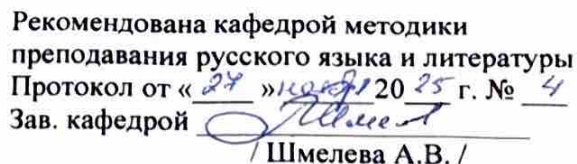 Рекомендована кафедрой методики
преподавания русского языка и литературы
Протокол от «27» ноября 2025 г. № 4
Зав. кафедрой
/ Шмелева А.В. /